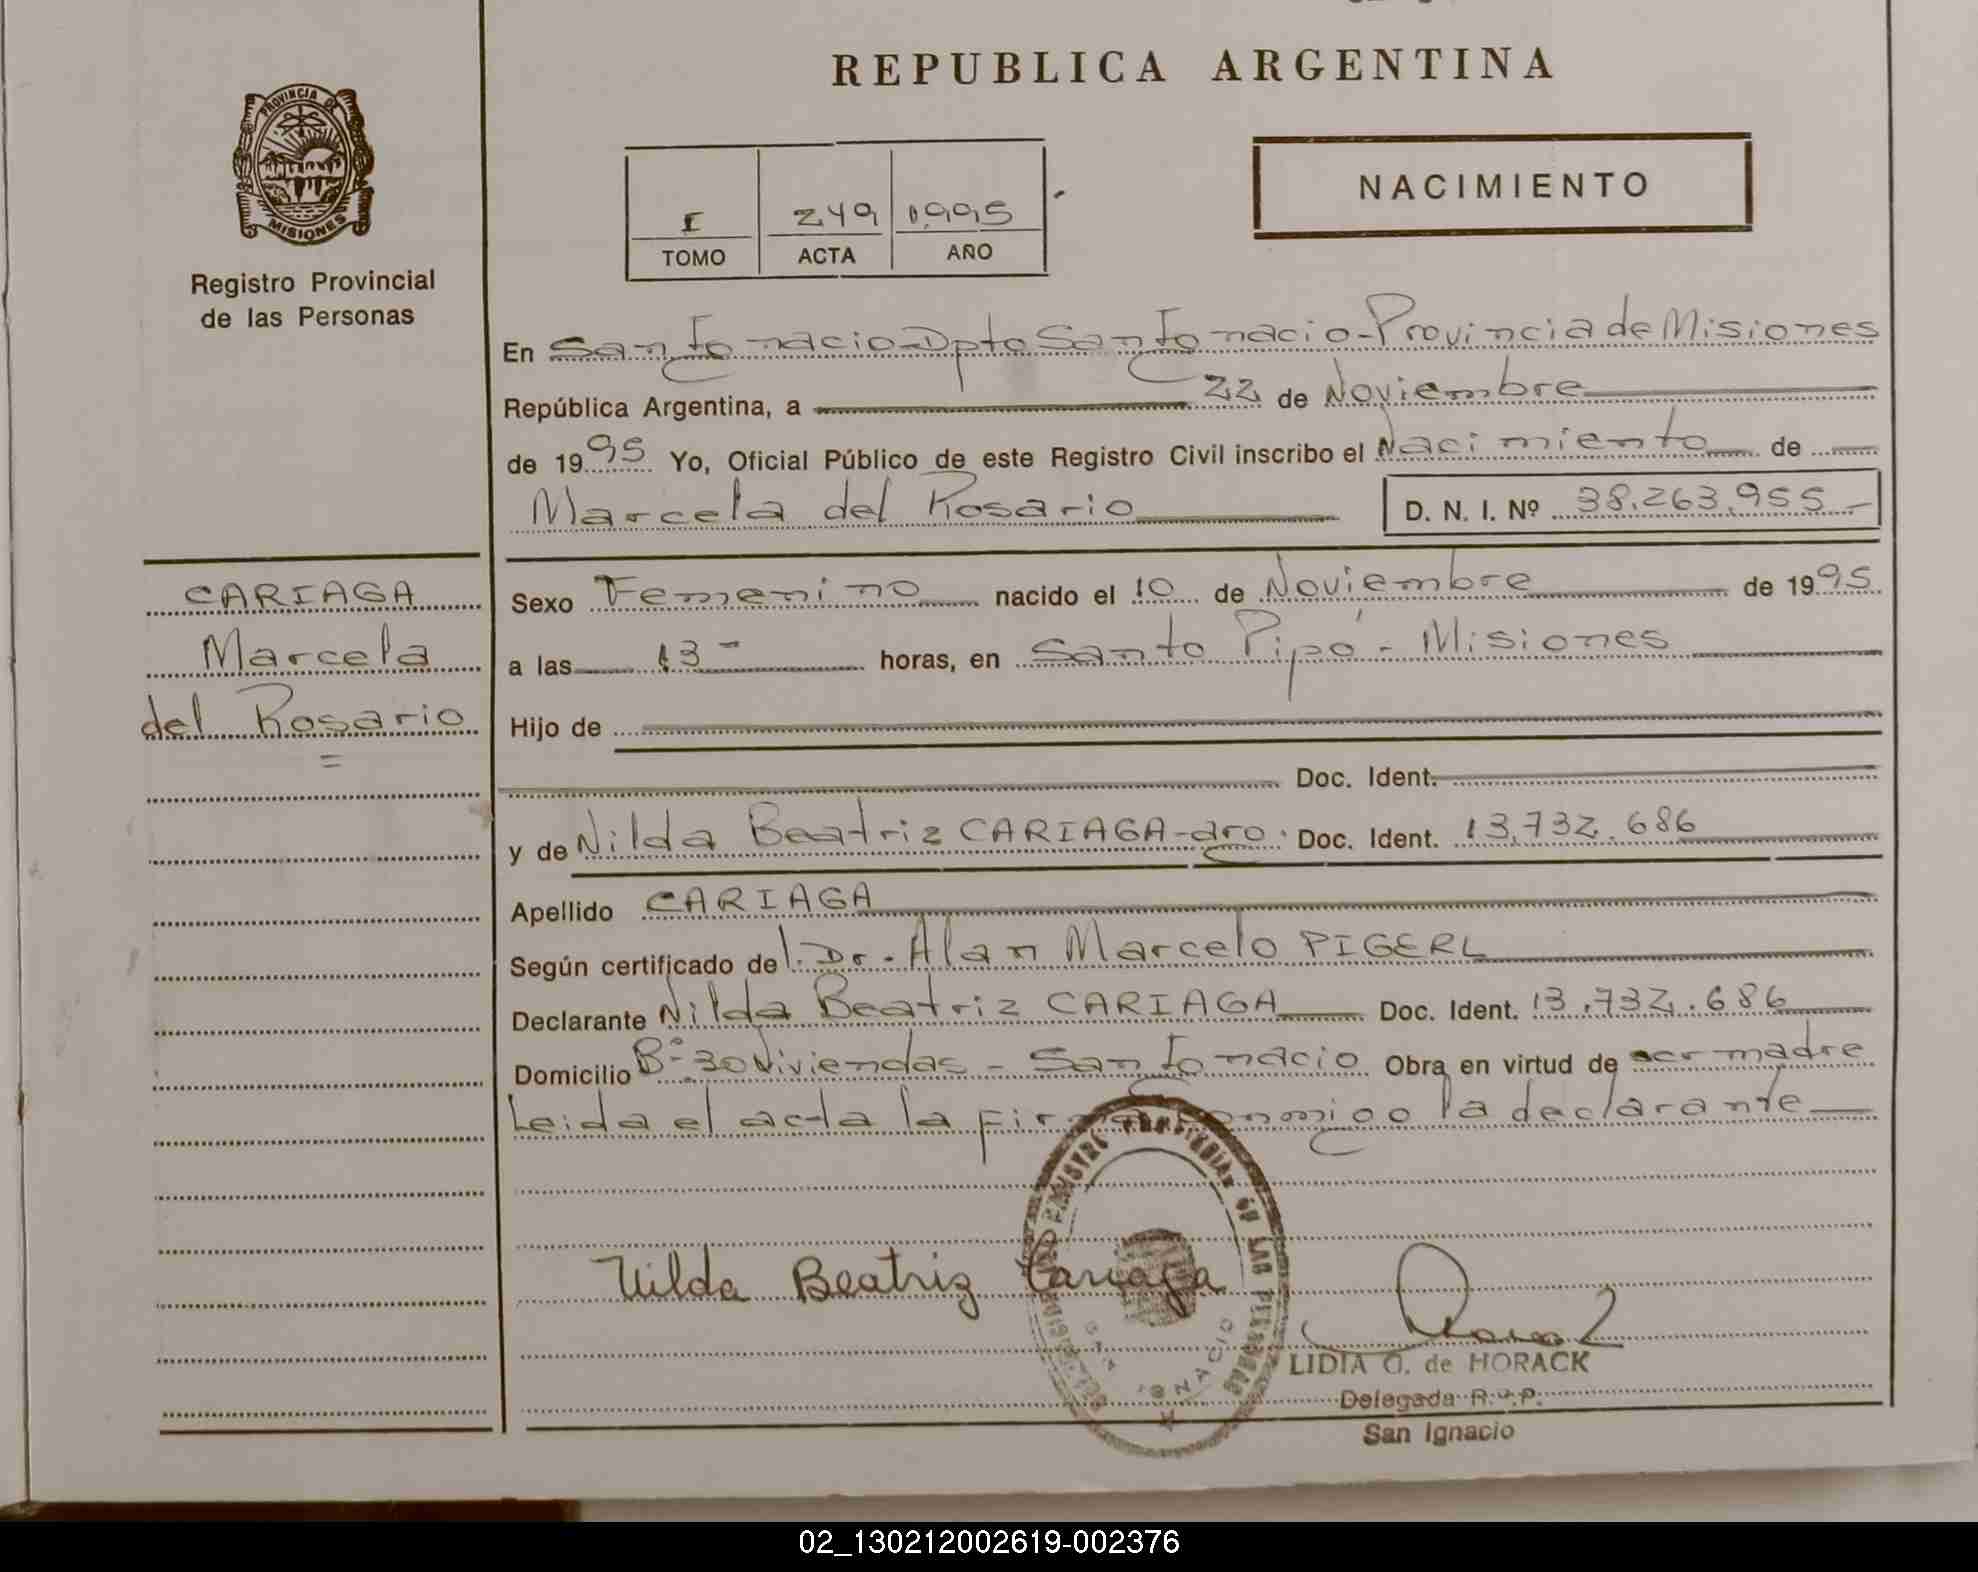 REPUBLICA ARGENTINA
PROVINCIA DE
MISIONES
Registro Provincial
de las Personas
I 249 1995
TOMO ACTA AÑO
NACIMIENTO
En San Ignacio - Dpto San Ignacio - Provincia de Misiones
República Argentina, a 22 de Noviembre
de 1995 Yo, Oficial Público de este Registro Civil inscribo el Nacimiento de
Marcela del Rosario D. N. I. Nº 38.263.955.-
CARIAGA
Marcela
del Rosario
=
Sexo Femenino nacido el 10 de Noviembre de 1995
a las 13 - horas, en Santo Pipó - Misiones
Hijo de
Doc. Ident.
y de Nilda Beatriz CARIAGA - arg. Doc. Ident. 13.732.686
Apellido CARIAGA
Según certificado del. Dr. Alan Marcelo PIGERL
Declarante Nilda Beatriz CARIAGA Doc. Ident. 13.732.686
Domicilio Bº 30 Viviendas - San Ignacio Obra en virtud de ser madre
Leida el acta la firma conmigo la declarante
Nilda Beatriz Cariaga
REGISTRO PROVINCIAL DE LAS PERSONAS
SAN IGNACIO
LIDIA O. de HORACK
Delegada R. P. P.
San Ignacio
02_130212002619-002376